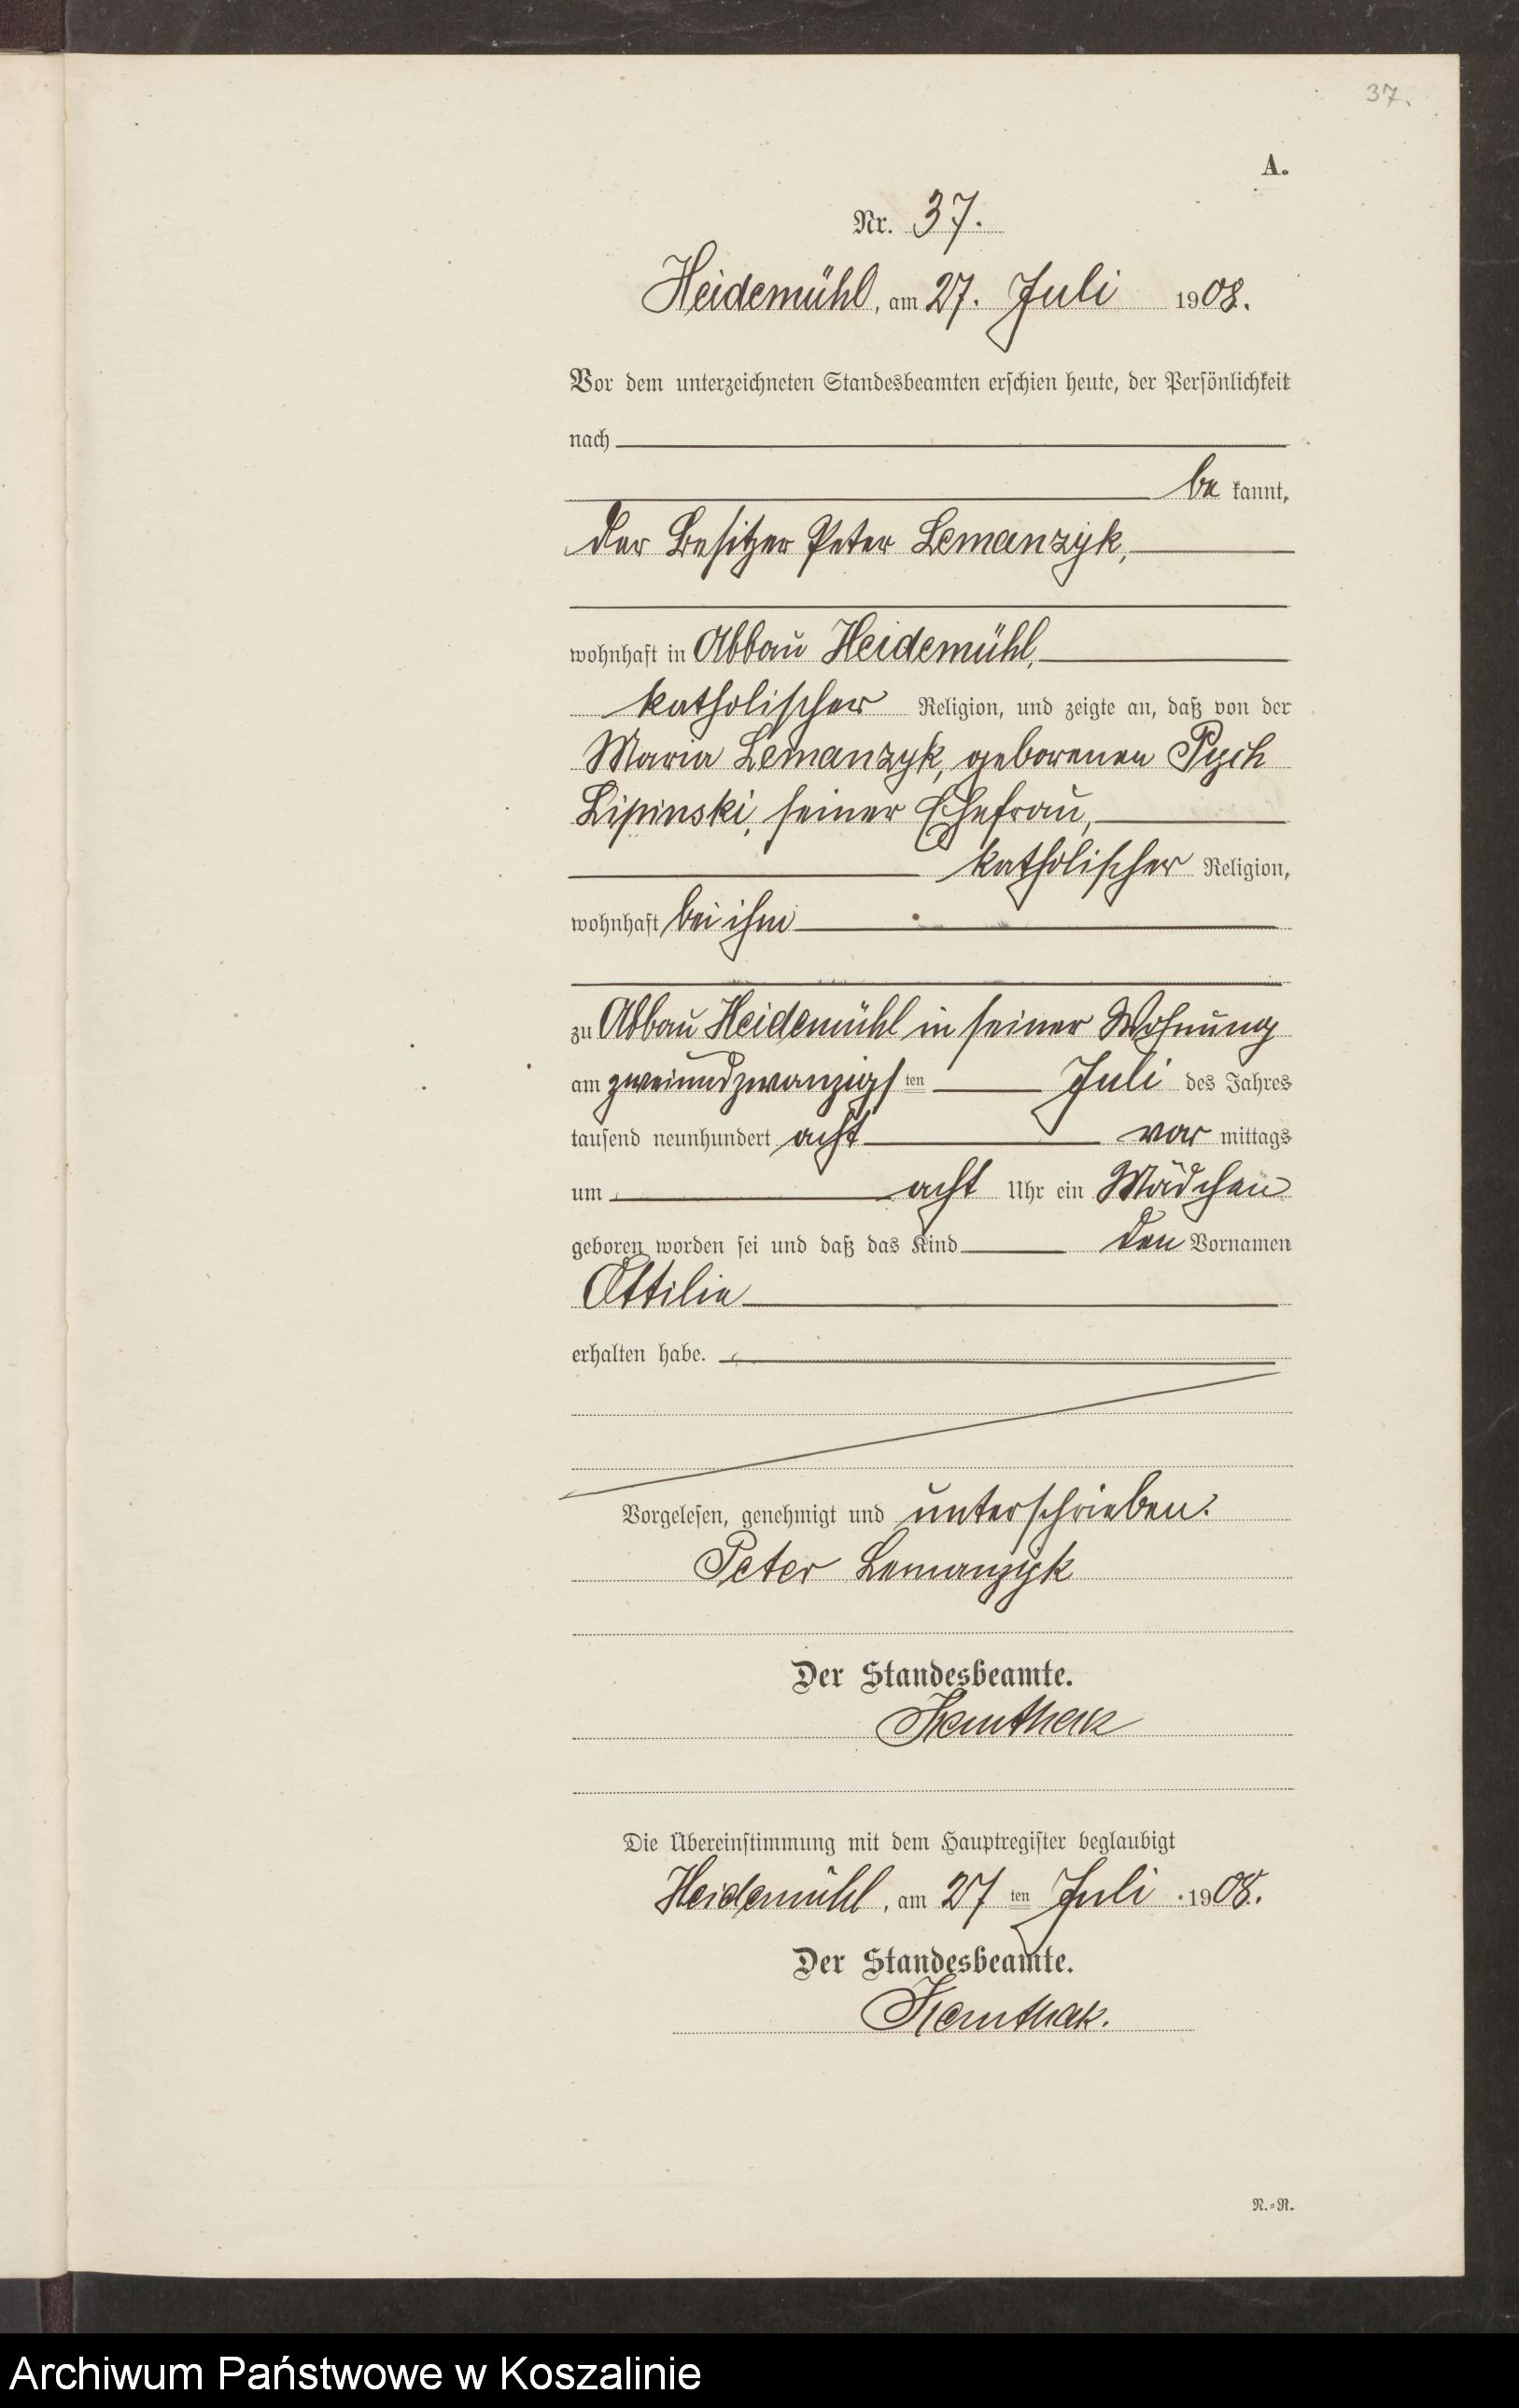 37.
A.
Nr. 37.
Heidemühl, am 27. Juli 1908.
Vor dem unterzeichneten Standesbeamten erschien heute, der Persönlichkeit
nach
be kannt,
der Besitzer Peter Lemanzyk,
wohnhaft in Abbau Heidemühl,
katholischer Religion, und zeigte an, daß von der
Maria Lemanzyk, geborenen Pych
Lipinski, seiner Ehefrau,
katholischer Religion,
wohnhaft bei ihm
zu Abbau Heidemühl in seiner Wohnung
am zweiundzwanzigs ten Juli des Jahres
tausend neunhundert acht vor mittags
um acht Uhr ein Mädchen
geboren worden sei und daß das Kind den Vornamen
Ottilie
erhalten habe.
Vorgelesen, genehmigt und unterschrieben.
Peter Lemanzyk
Der Standesbeamte.
Die Übereinstimmung mit dem Hauptregister beglaubigt
Heidemühl, am 27 ten Juli 1908.
Der Standesbeamte.
N.=R.
Archiwum Państwowe w Koszalinie